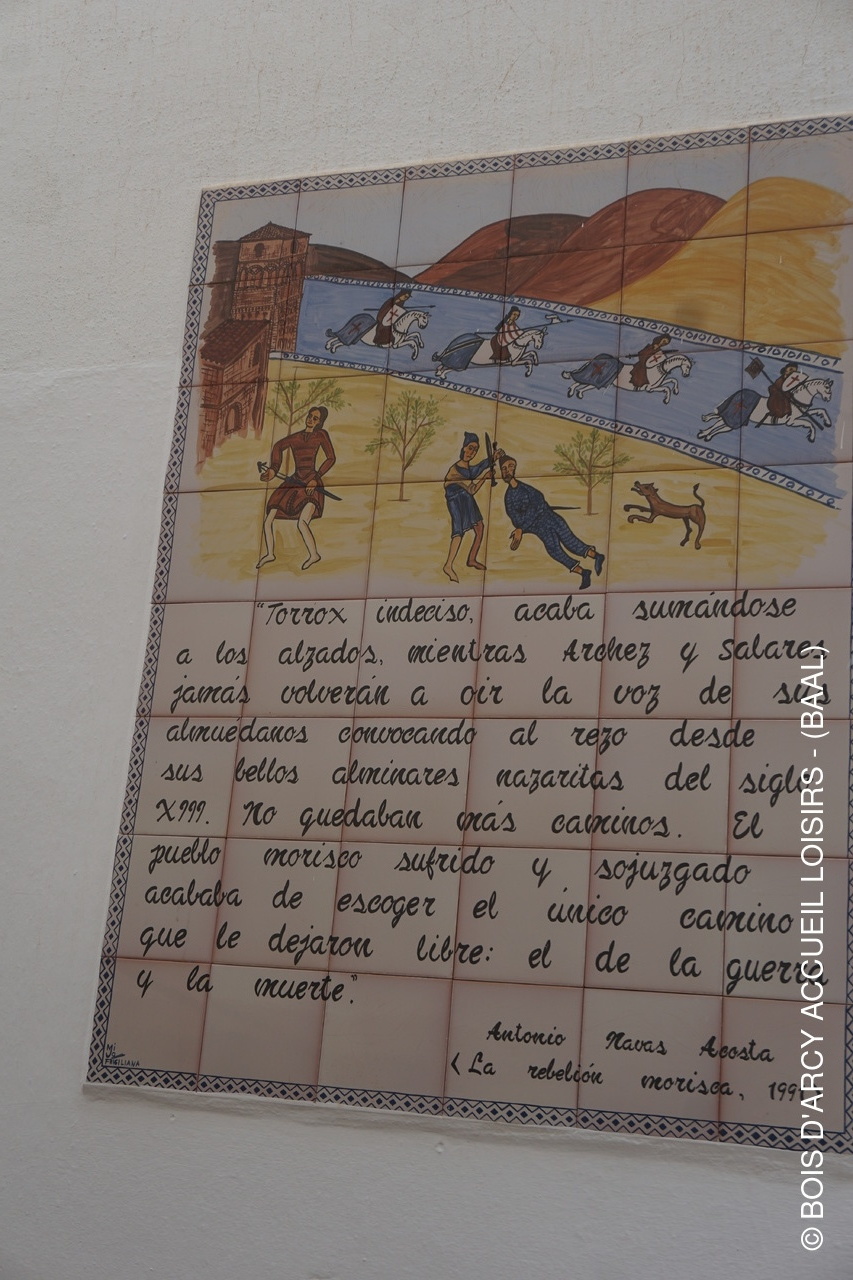 "Torrox indeciso, acaba sumándose
a los alzados, mientras Archez y Salares
jamás volverán a oir la voz de sus
almuédanos convocando al rezo desde
sus bellos alminares nazaritas del siglo
XIII. No quedaban más caminos. El
pueblo morisco sufrido y sojuzgado
acababa de escoger el único camino
que le dejaron libre: el de la guerra
y la muerte."
Antonio Navas Acosta
<La rebelión morisca,
FRIGILIANA
© BOIS D'ARCY ACCUEIL LOISIRS - (BAAL)